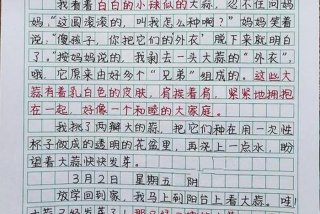 我看着白白的小球似的大蒜，忍不住问妈
妈：“这圆滚滚的，叫我怎么种啊？”妈妈笑着
说：“傻孩子，你把它们的‘外衣’脱下来就明白
了。”按妈妈说的，我剥去一头大蒜的“外衣”，
哦，它原来由好多“兄弟”组成的。这些大
蒜有着乳白色的皮肤，肩挨着肩，紧紧地拥抱
在一起，好像一个和睦的大家庭。
我挑了两瓣大蒜，把它们种在用一次性
杯子做成的透明的花盆里，再浇上一点水，盼
望着大蒜快快发芽。
3月2日 星期五 阴
放学回到家，我马上到阳台上看大蒜。哇！